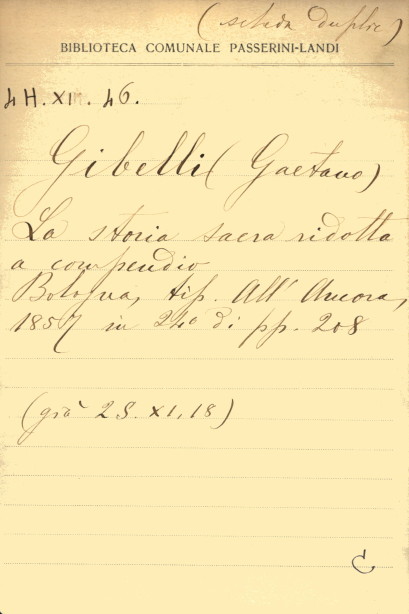 (scheda duplic)
BIBLIOTECA COMUNALE PASSERINI-LANDI
4 H. XI. 46.
Gibelli (Gaetano)
La storia sacra ridotta
a compendio
Bologna, tip. All' Ancora,
1857 in 24º di pp. 208
(già 2 S. XI, 18)
C